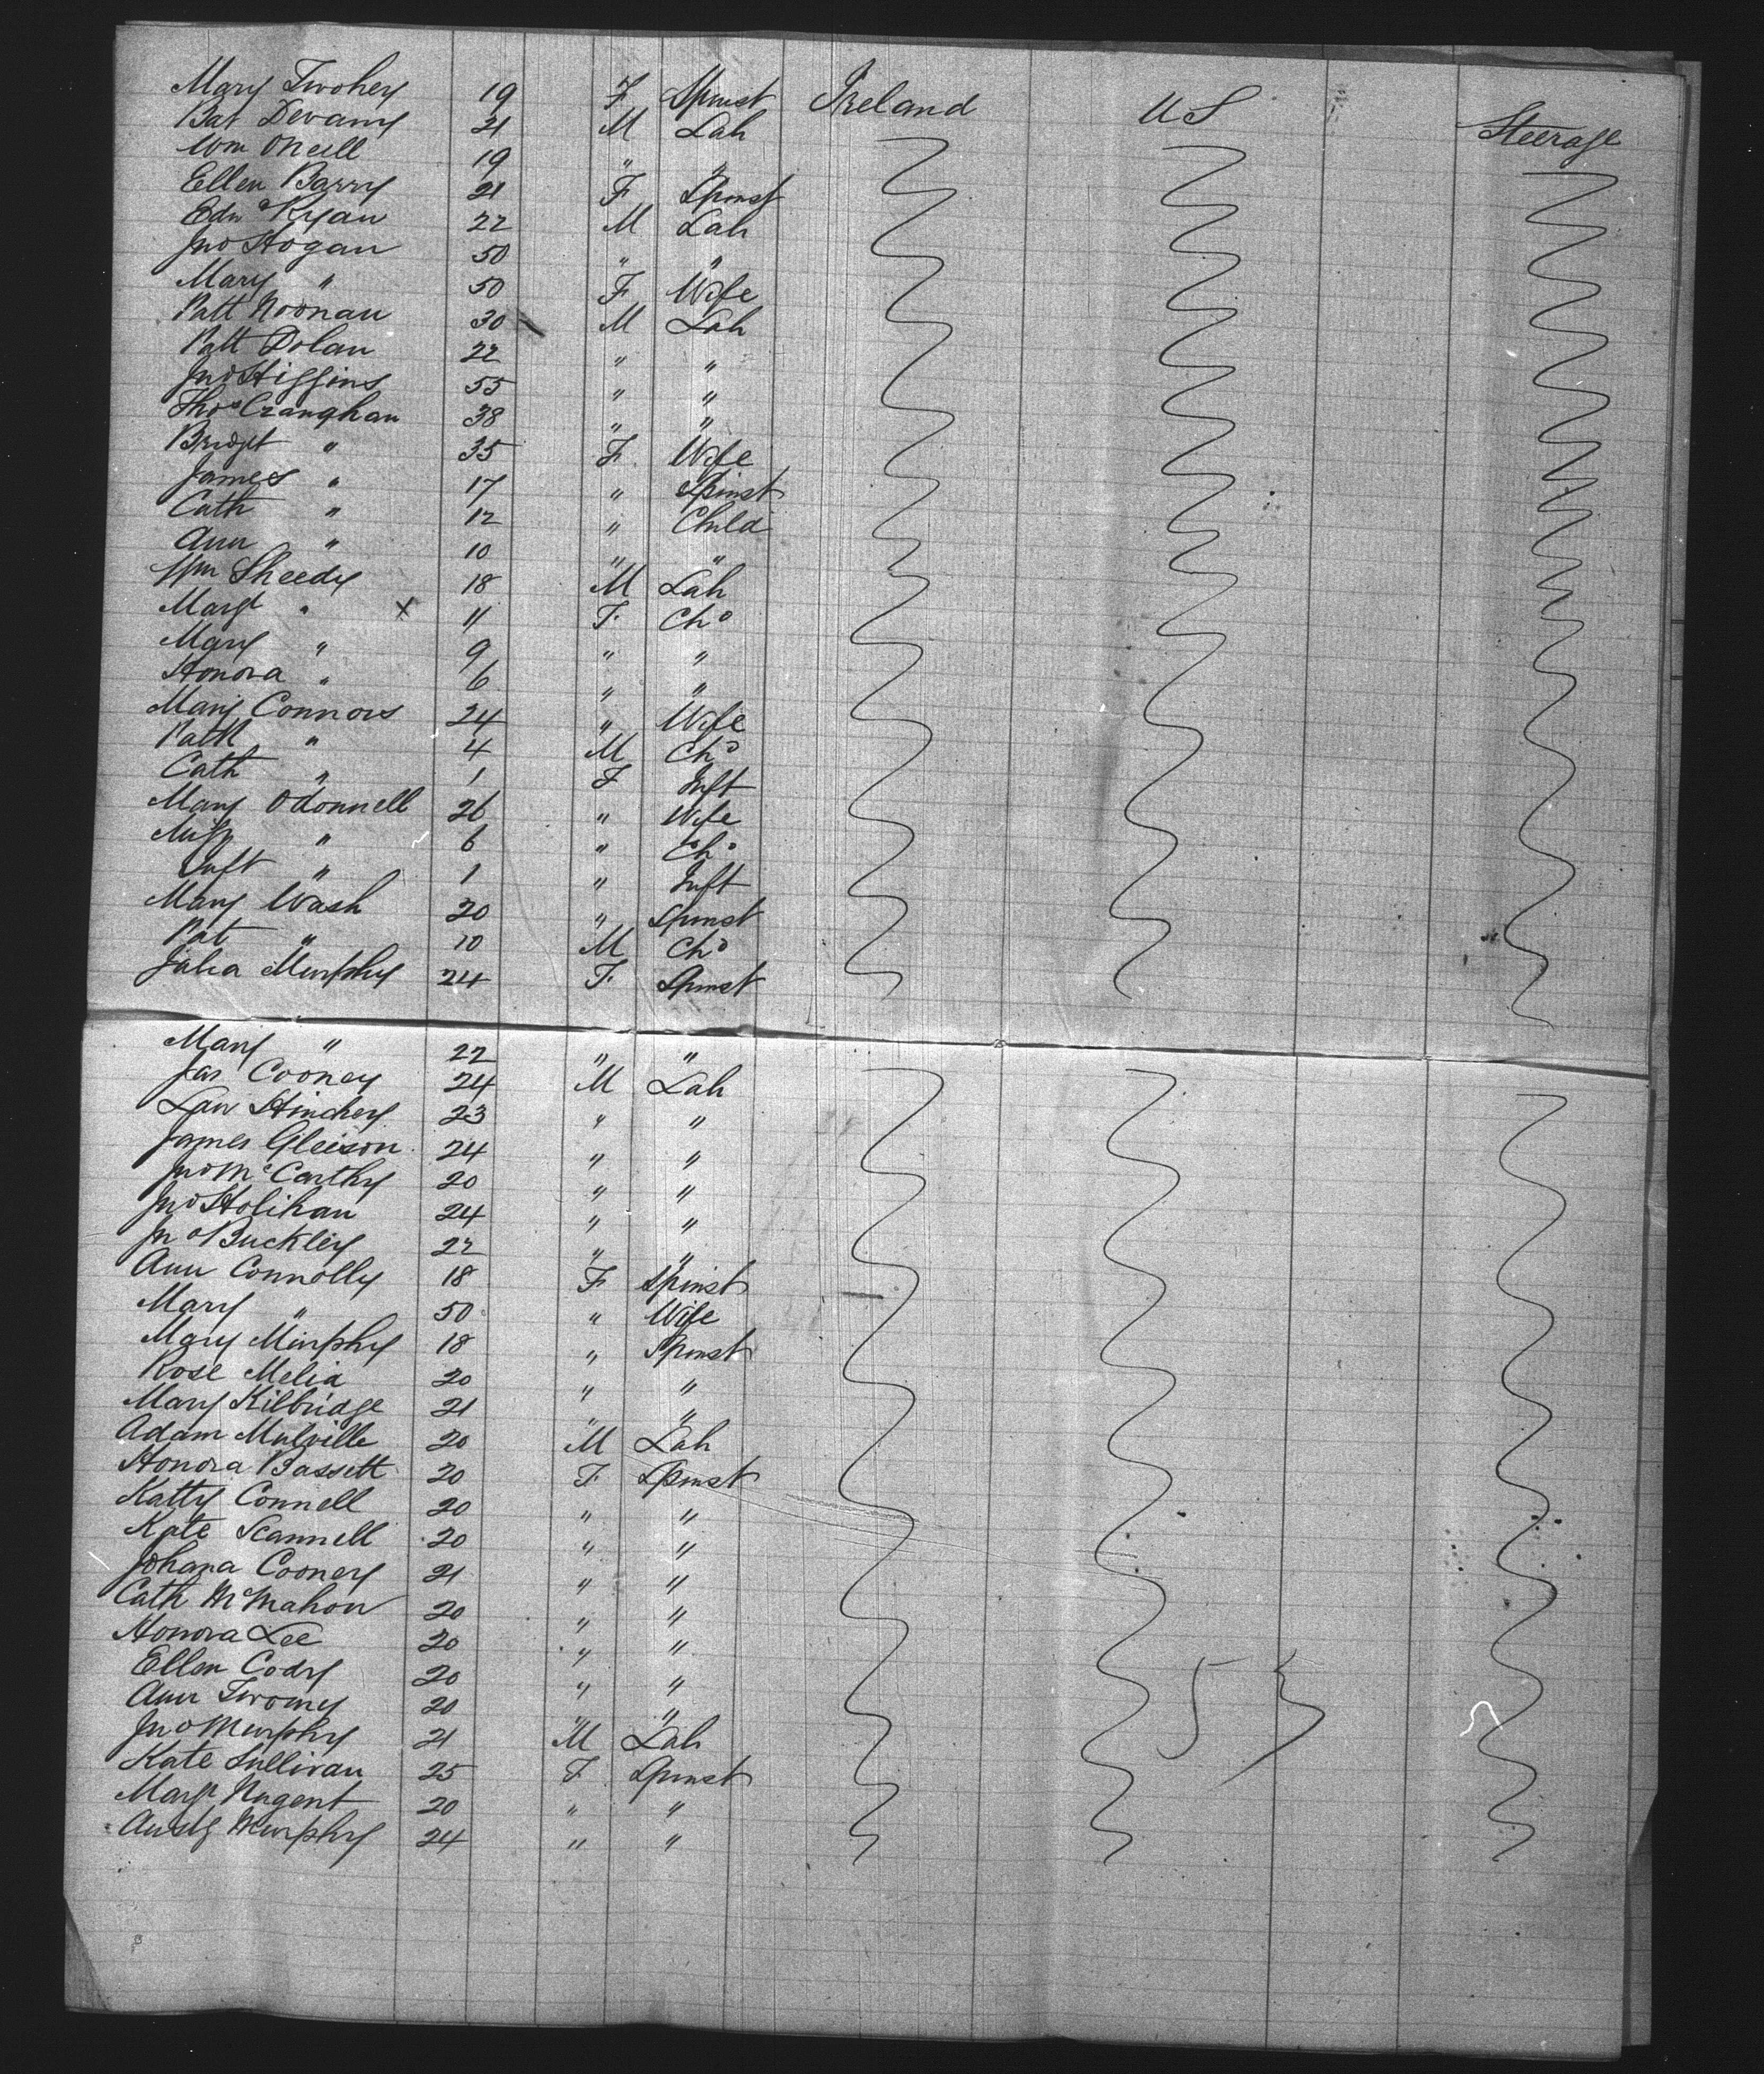 Mary Twohey 19 F Spinst Ireland U S Steerage
Pat Devany 21 M Lab
Wm ONeill 19 " "
Ellen Barry 21 F Spinst
Edwd Ryan 22 M Lab
Jno Hogan 50 " "
Mary " 50 F Wife
Patt Noonan 30 M Lab
Patt Dolan 22 " "
Jno Higgins 55 " "
Thos Cranghan 38 " "
Bridget " 35 F Wife
James " 17 " Spinst
Cath " 12 " Child
Ann " 10 " "
Wm Sheedy 18 M Lab
Margt " X 11 F Chd
Mary " 9 " "
Honora " 6 " "
Mary Connors 24 " Wife
Patk " 4 M Chd
Cath " 1 F Inft
Mary ODonnell 26 " Wife
" 6 " Chd
Inft " 1 " Inft
Mary Wash 20 " Spinst
Pat " 10 M Chd
Julia Murphy 24 F Spinst
Mary " 22 " "
Jas Cooney 24 M Lab
Law Hinchey 23 " "
James Gleison 24 " "
Jno McCarthy 20 " "
Jno Holihan 24 " "
Jno Buckley 22 " "
Ann Connolly 18 F Spinst
Mary " 50 " Wife
Mary Murphy 18 " Spinst
Rose Melia 20 " "
Mary Kilbridge 21 " "
Adam Mulville 20 M Lab
Honora Bassett 20 F Spinst
Katty Connell 20 " "
Kate Scannell 20 " "
Johana Cooney 21 " "
Cath McMahon 20 " "
Honora Lee 20 " "
Ellen Cody 20 " "
Ann Twomey 20 " "
Jno Murphy 21 M Lab
Kate Sullivan 25 F Spinst
Margt Nugent 20 " "
Murphy 24 " "
53